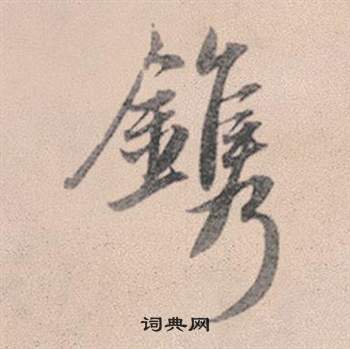 鐫
词典网